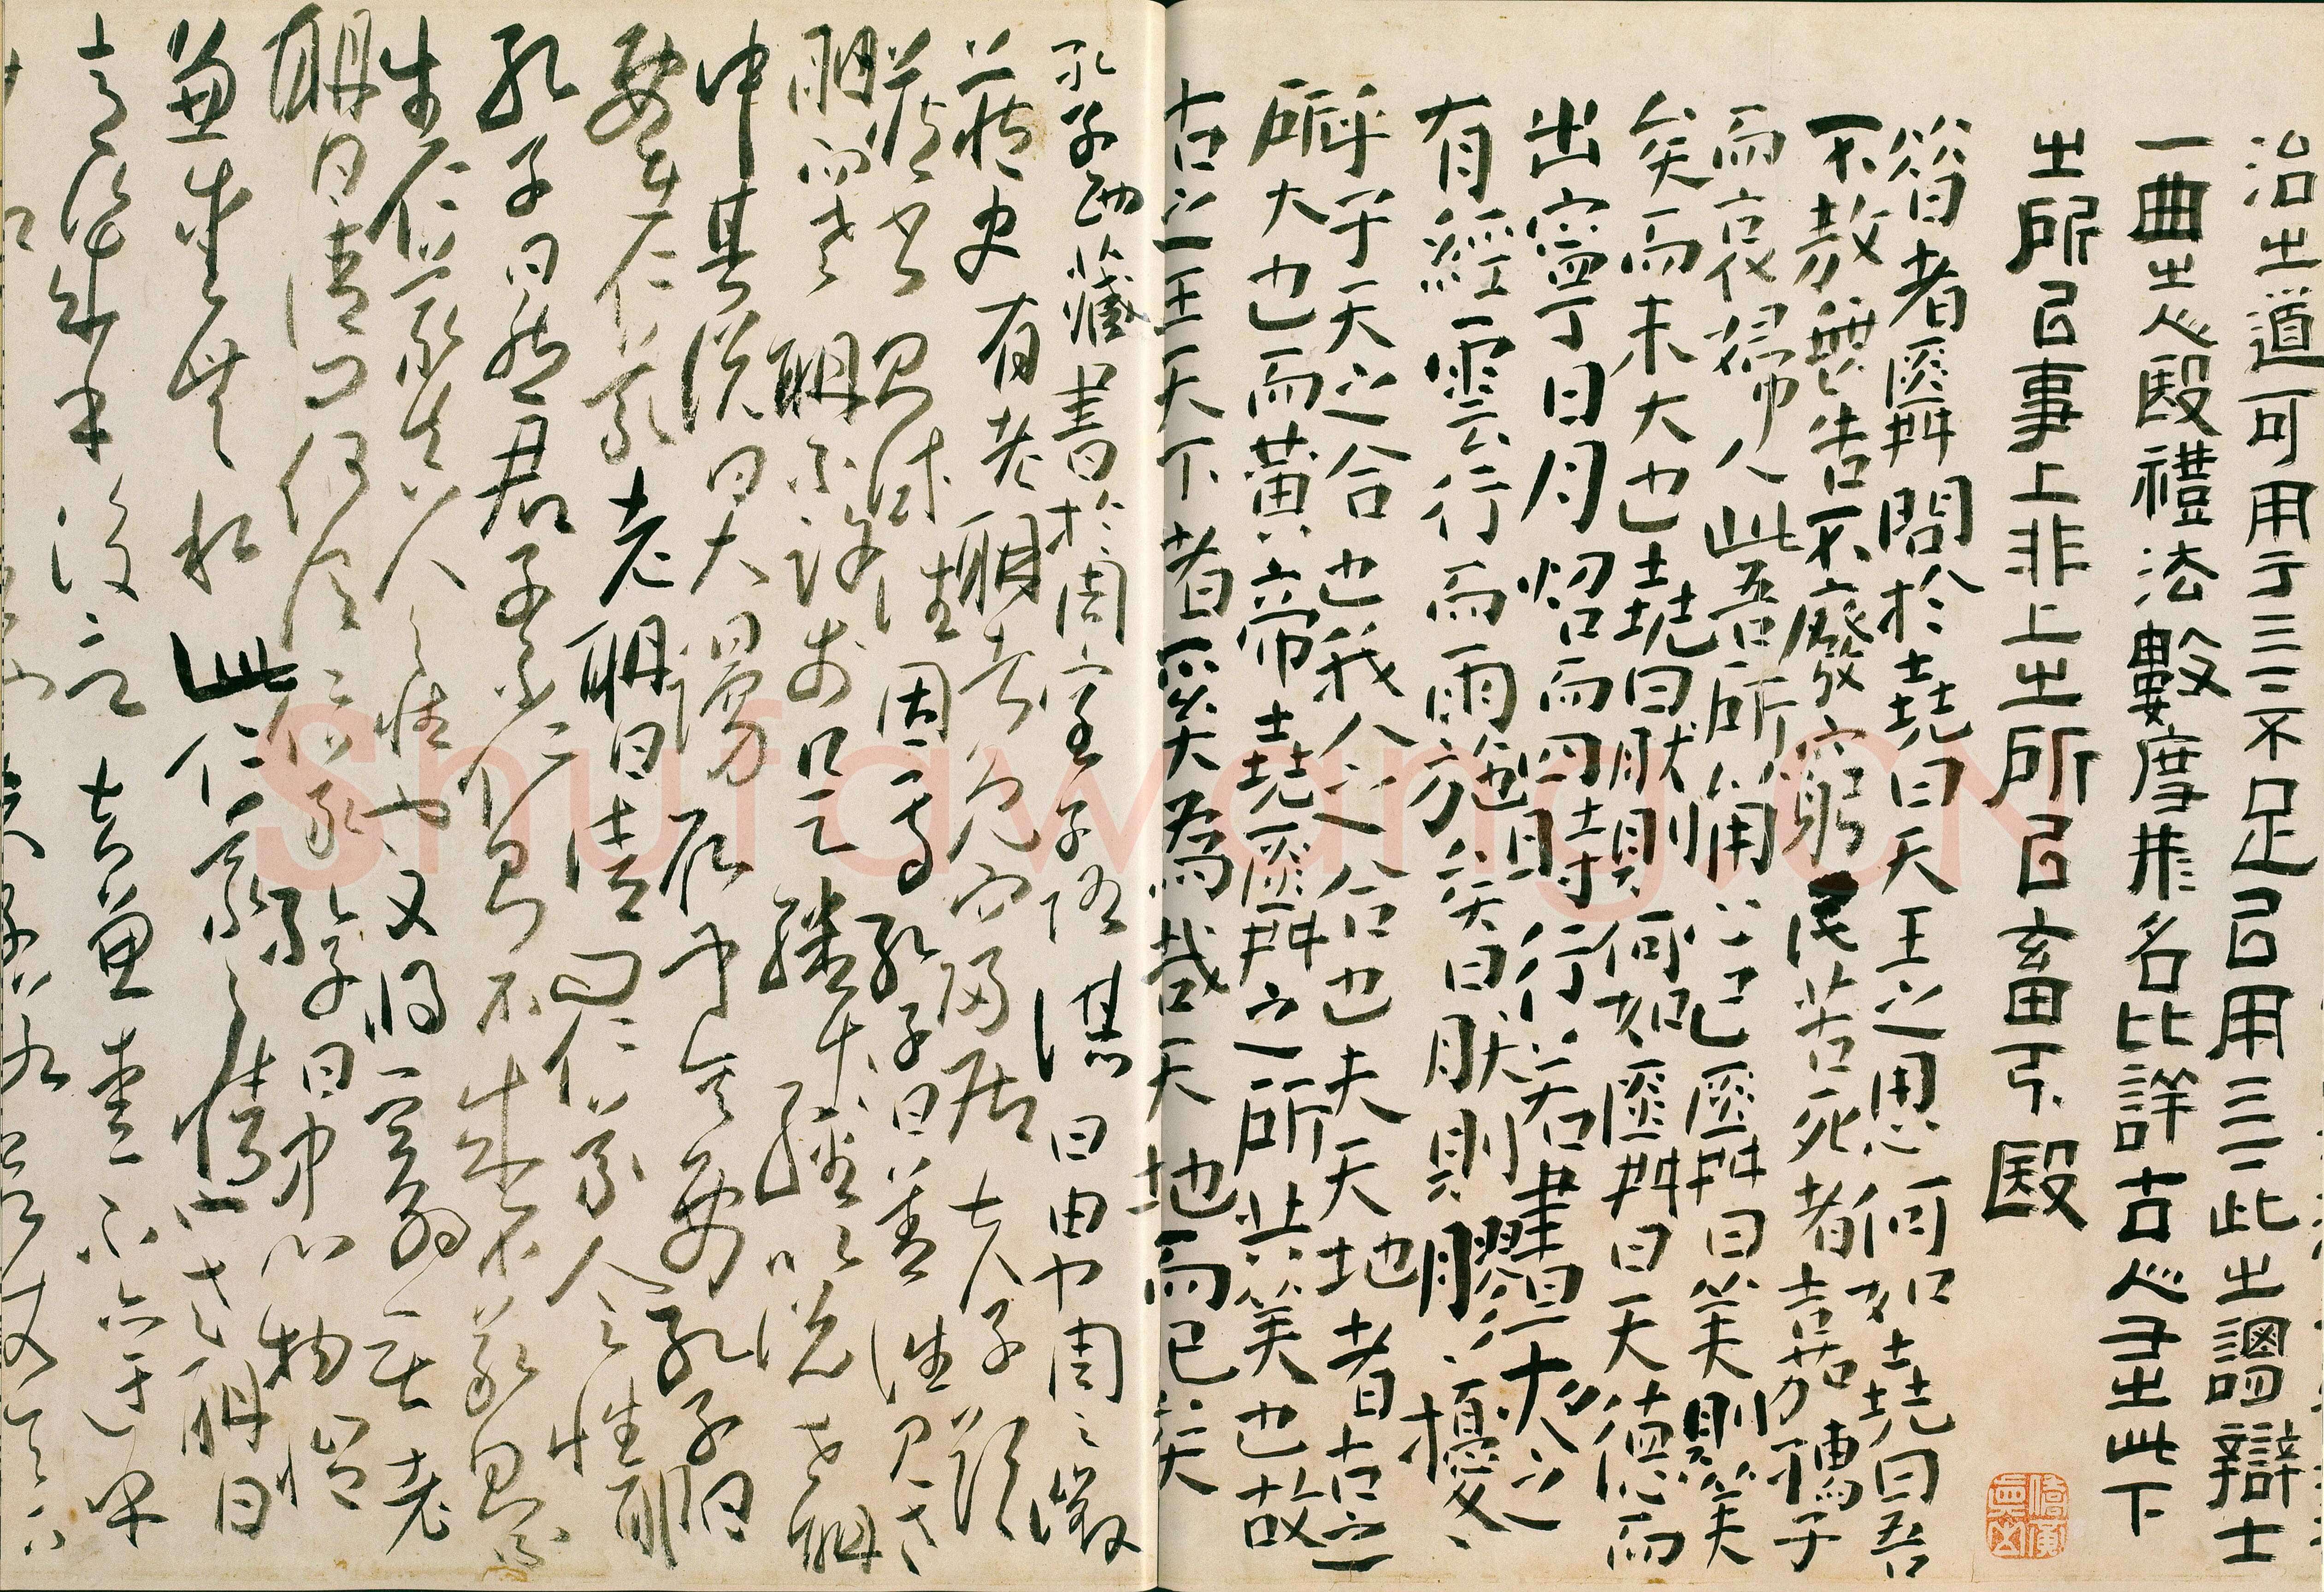 治㞢道可用亍三三不足㠯用三三此㞢謂辯士
一曲㞢人殹禮法數度形名比詳古人有㞢此下
㞢所㠯事上非上㞢所㠯畜下殹
昝者舜問於堯曰天王之用心何如堯曰吾
不敖無告不廢窮民苦死者嘉孺子
而哀婦人此吾所以用心已舜曰美則美
矣而未大也堯曰肰則何如舜曰天德而
出寧日月炤而四時行若晝夜之
有經雲行而雨施矣曰肰則膠、擾、
呼乎天之合也我人之合也夫天地者古之
所大也而黃帝堯舜之所共美也故
古之王天下者奚為哉天地而已矣
孔子西藏書於周室子路謀曰由也聞周之徵
藏史有老聃者免而歸居夫子欲
藏書則試往因焉孔子曰善往見老
聃而老聃不許於是繙十二經以說老聃
中其說曰大謾願聞其要孔子曰
要在仁義老聃曰請問仁義人之性耶
孔子曰然君子不仁則不成不義則不
生仁義真人之性也又將奚為矣老
聃曰請問何謂仁義孔子曰中心物愷
兼愛無私此仁義之情也老聃曰
意幾乎後言夫兼愛不亦迂乎
Shufawang.CN